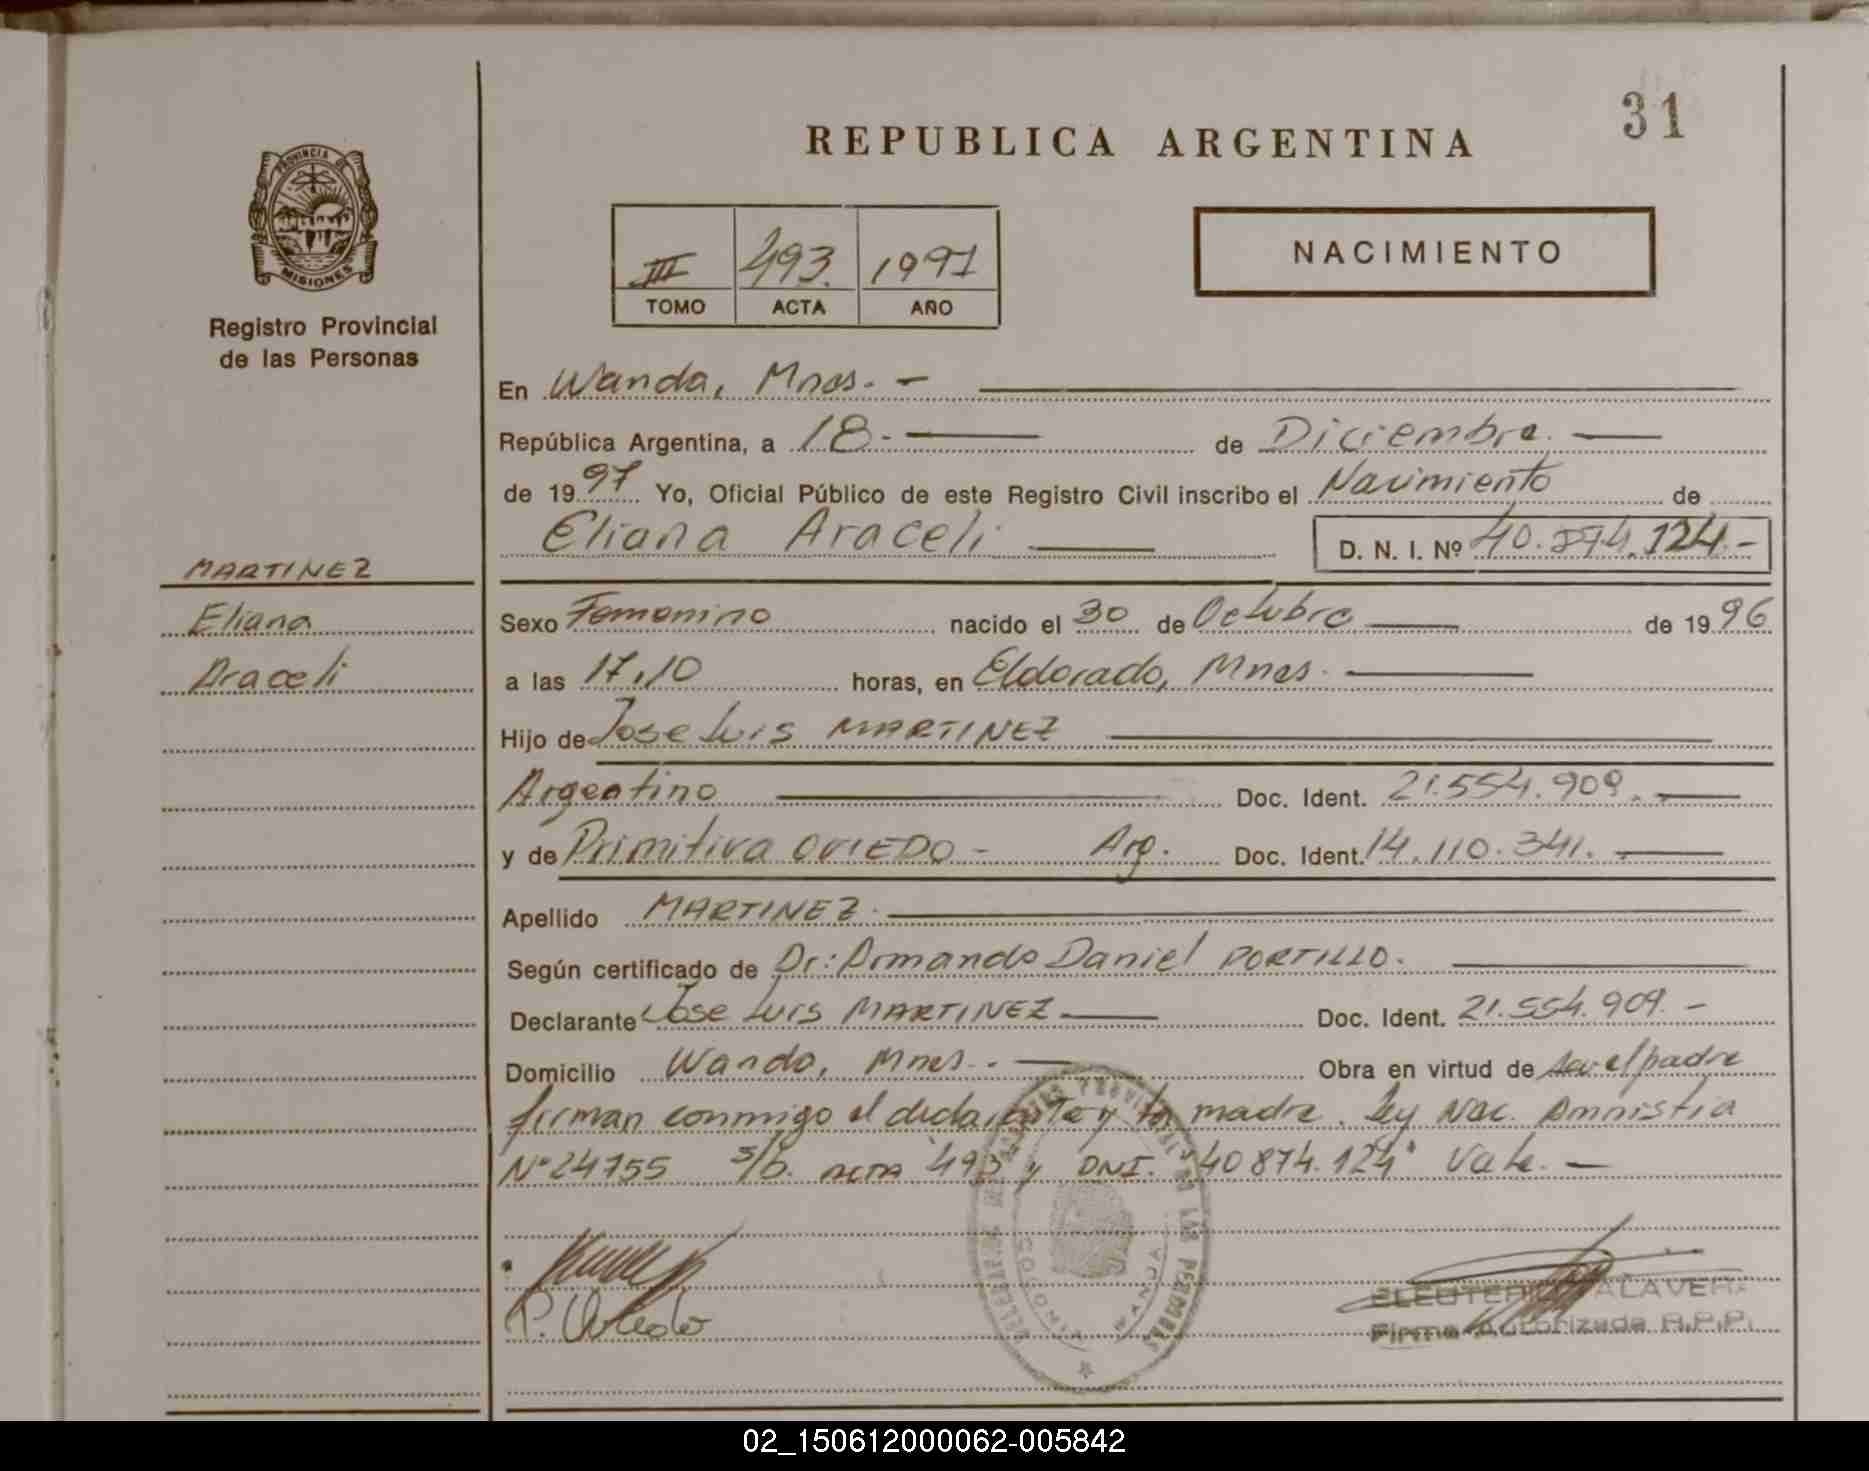 31
REPUBLICA ARGENTINA
PROVINCIA DE
MISIONES
Registro Provincial
de las Personas
III 493. 1997
TOMO ACTA AÑO
NACIMIENTO
En Wanda, Mnes. -
República Argentina, a 18.- de Diciembre.
de 1997 Yo, Oficial Público de este Registro Civil inscribo el Nacimiento de
Eliana Araceli
D. N. I. Nº 40.874.124.-
MARTINEZ
Eliana
Araceli
Sexo Femenino nacido el 30 de Octubre de 1996
a las 17,10 horas, en Eldorado, Mnes.
Hijo de Jose Luis MARTINEZ
Argentino Doc. Ident. 21.554.909.
y de Primitiva OVIEDO - Arg. Doc. Ident. 14.110.341.
Apellido MARTINEZ.
Según certificado de Dr: Armando Daniel PORTILLO.
Declarante Jose Luis MARTINEZ Doc. Ident. 21.554.909.-
Domicilio Wanda, Mnes. Obra en virtud de ser el padre
firman conmigo el declarante y la madre. Ley Nac. Amnistia
Nº 24755 s/b. ACTA 493 y DNI. 40874.124" Vale.
P. Oviedo
WANDA
ELEUTERIO TALAVERA
Firma Autorizada R.P.P.
02_150612000062-005842